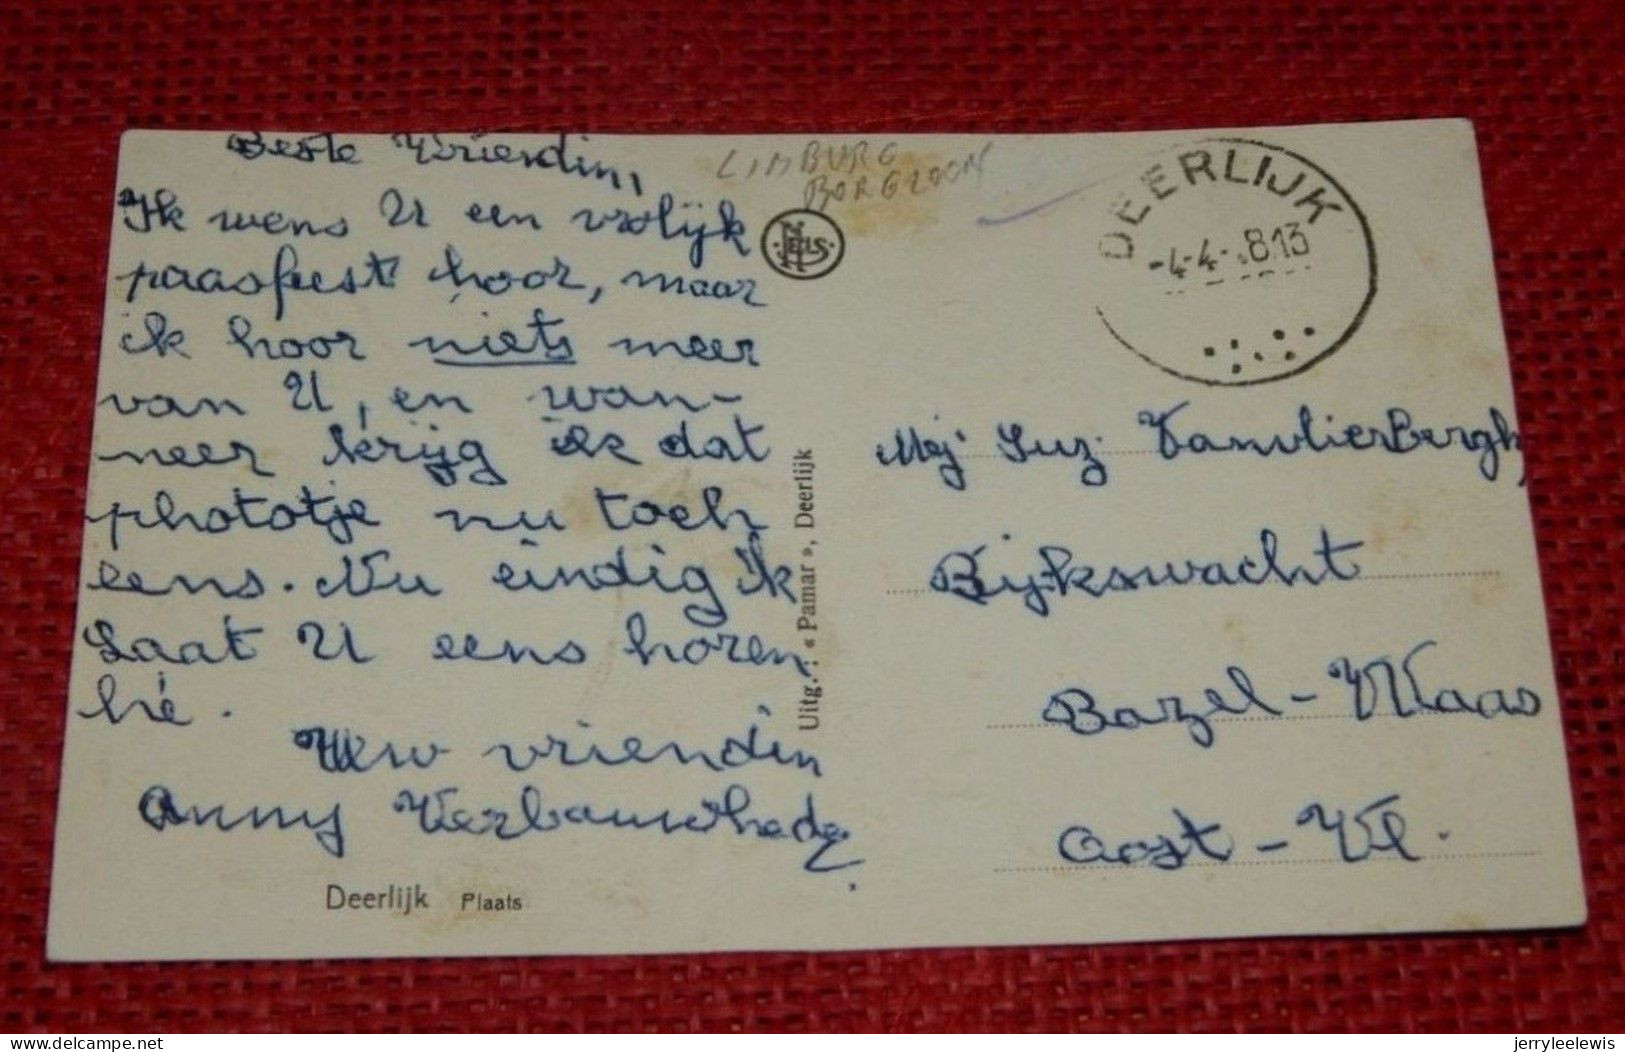 Beste Vriendin,
Ik wens U een vrolijk
paasfeest hoor, maar
ik hoor niets meer
van U, en wan-
neer krijg ik dat
phototje nu toch
eens. Nu eindig ik
Laat U eens horen
hé.
Uw vriendin
Anny
Deerlijk Plaats
LIMBURG
BORGLOON
NELS
Uitg.: « Pamar », Deerlijk
DEERLIJK
-4-4-
Mej Suz. VanvlierBergh
Rijkswacht
Bazel - Waas
Oost - Vl.
© delcampe.net
jerryleelewis